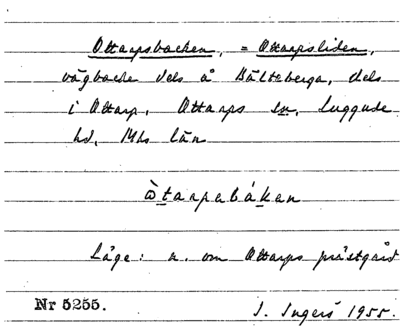 Ottarpsbacken, = Ottarpsliden,
vägbacke dels å Bälteberga, dels
i Ottarp, Ottarps sn, Luggude
hd, Mhs län
òtarpsbákan
Läge: n. om Ottarps prästgård
Nr 5255.
I. Ingers 1955.